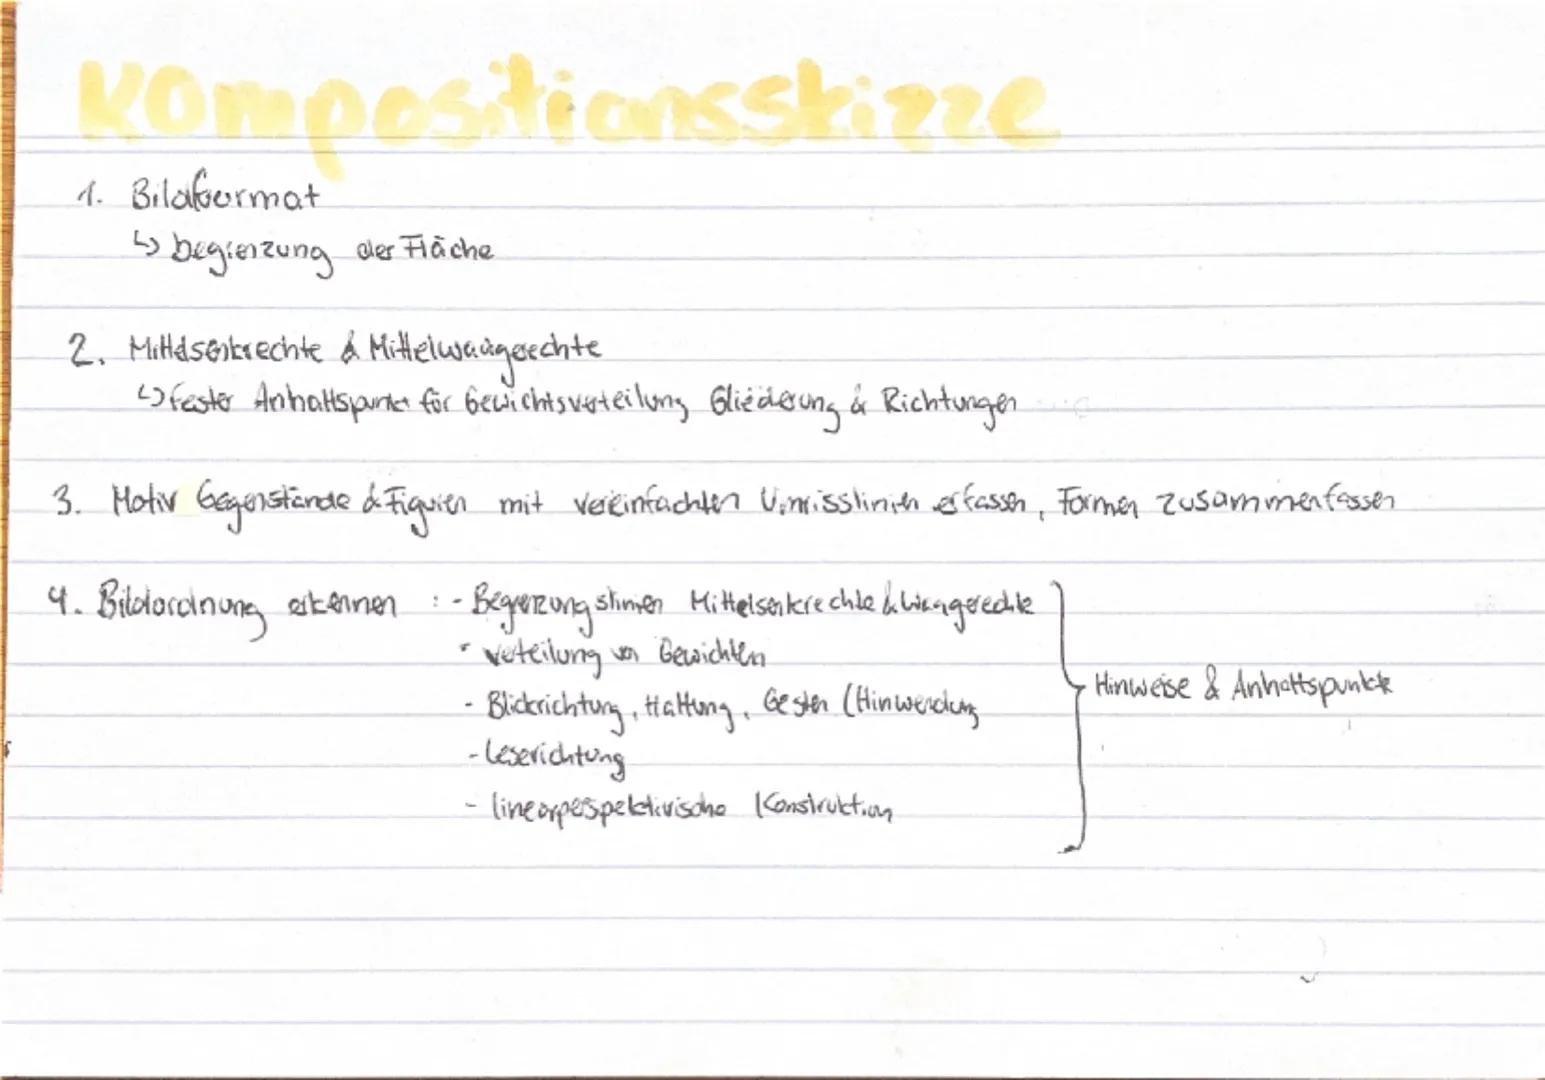 Kompositionsskizze
1. Bildformat
↳ begrenzung der Fläche
2. Mittelsenkrechte & Mittelwaagerechte
↳ fester Anhaltspunkt für Gewichtsverteilung Gliederung & Richtungen
3. Motiv Gegenstände & Figuren mit vereinfachten Umrisslinien erfassen, Formen zusammenfassen
4. Bildordnung erkennen : - Begrenzungslinien Mittelsenkrechte & Waagerechte
- verteilung von Gewichten
- Blickrichtung, Haltung, Gesten (Hinwendung
- Leserichtung
- linearperspektivische Konstruktion
Hinweise & Anhaltspunkte